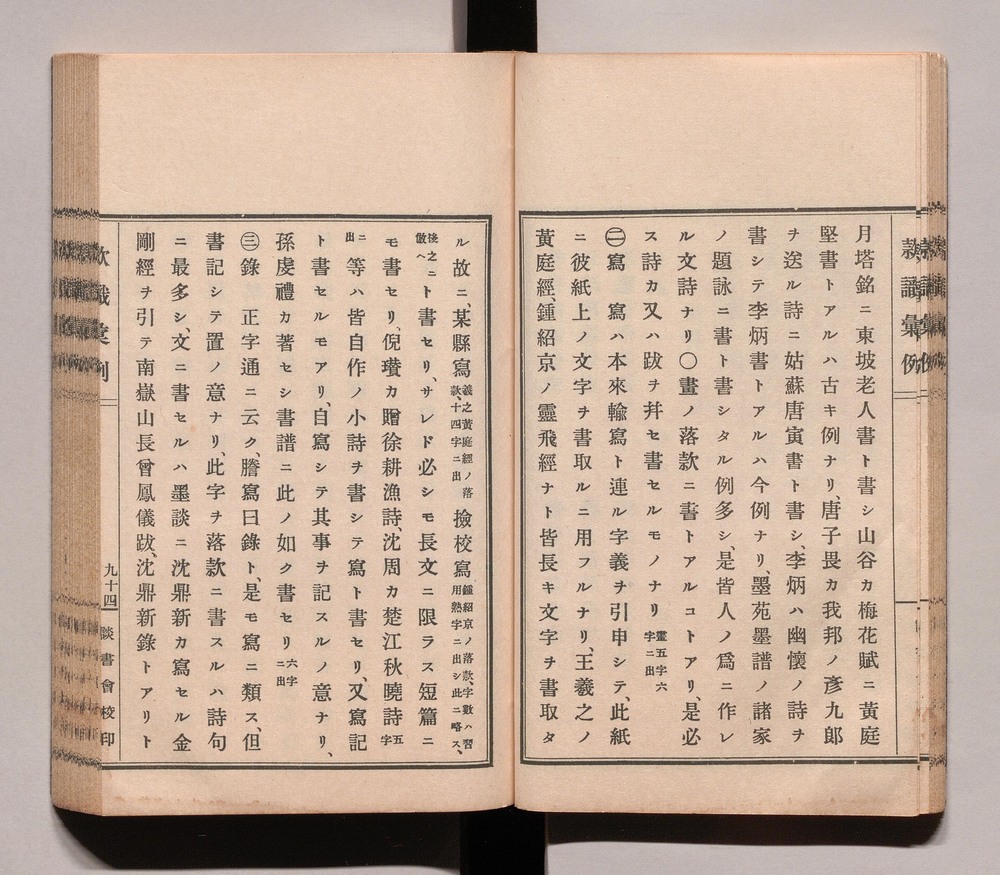 款識彙例
月塔銘ニ東坡老人書ト書シ山谷カ梅花賦ニ黄庭
堅書トアルハ古キ例ナリ、唐子畏カ我邦ノ彥九郎
ヲ送ル詩ニ姑蘇唐寅書ト書シ、李炳ハ幽懷ノ詩ヲ
書シテ李炳書トアルハ今例ナリ、墨苑墨譜ノ諸家
ノ題詠ニ書ト書シタル例多シ、是皆人ノ爲ニ作レ
ル文詩ナリ〇畫ノ落款ニ書トアルコトアリ、是必
ス詩カ又ハ跋ヲ幷セ書セルモノナリ靈五字六字ニ出
㊁寫　寫ハ本來輸寫ト連ル字義ヲ引申シテ、此紙
ニ彼紙上ノ文字ヲ書取ルニ用フルナリ、王羲之ノ
黄庭經、鍾紹京ノ靈飛經ナト皆長キ文字ヲ書取タ
ル故ニ、某縣寫義之黄庭經ノ落款、十四字ニ出撿校寫鍾紹京ノ落款、字數ハ習用熟字ニ出シ此ニ略ス、
後之ニ倣ヘト書セリ、サレド必シモ長文ニ限ラス短篇ニ
モ書セリ、倪瓚カ贈徐耕漁詩、沈周カ楚江秋曉詩五字
ニ出等ハ皆自作ノ小詩ヲ書シテ寫ト書セリ、又寫記
ト書セルモアリ、自寫シテ其事ヲ記スルノ意ナリ、
孫虔禮カ著セシ書譜ニ此ノ如ク書セリ六字ニ出
㊂錄　正字通ニ云ク、謄寫曰錄ト、是モ寫ニ類ス、但
書記シテ置ノ意ナリ、此字ヲ落款ニ書スルハ詩句
ニ最多シ、文ニ書セルハ墨談ニ沈鼎新カ寫セル金
剛經ヲ引テ南嶽山長曾鳳儀跋、沈鼎新錄トアリト
款識彙例
九十四
談書會校印